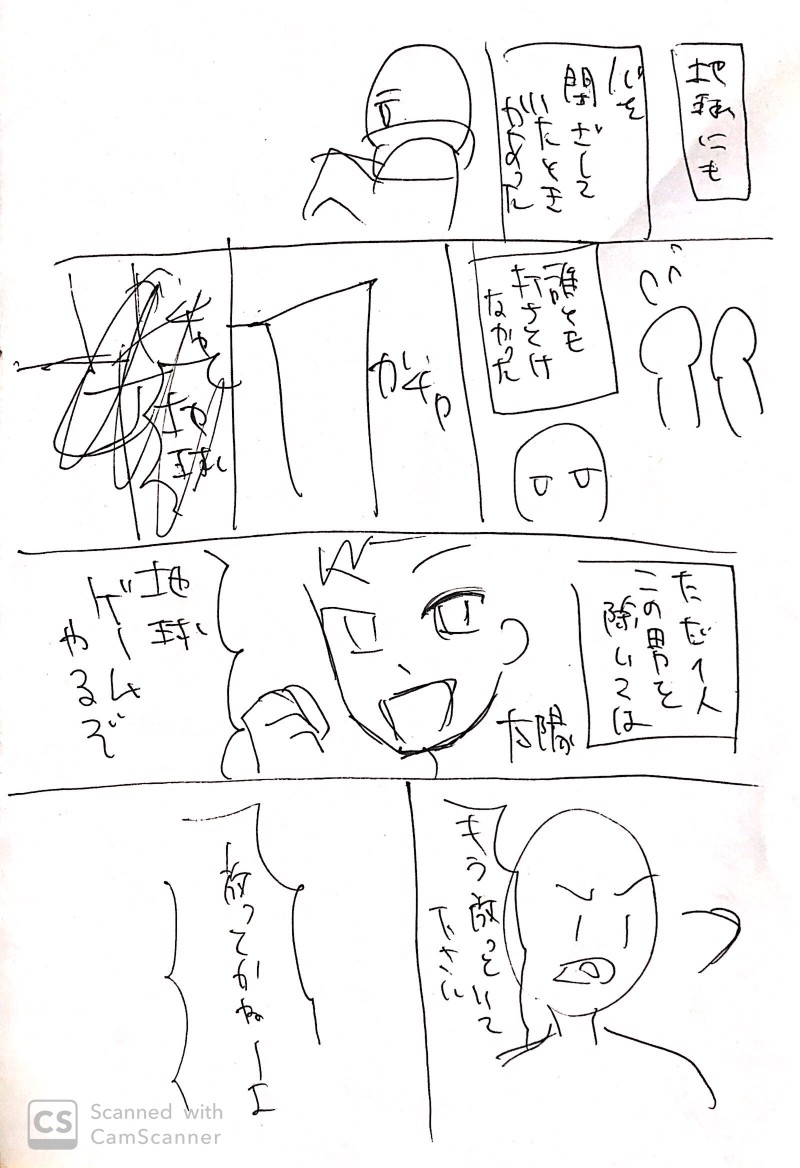 地球にも
心を
閉ざして
いたとき
があった
誰とも
打ちとけ
なかった
ガチャ
地球
ただ1人
この男を
除いては
太陽
地球
ゲーム
やるぞ
もう放っといて
ださい
放ってかねーよ
CS Scanned with
CamScanner